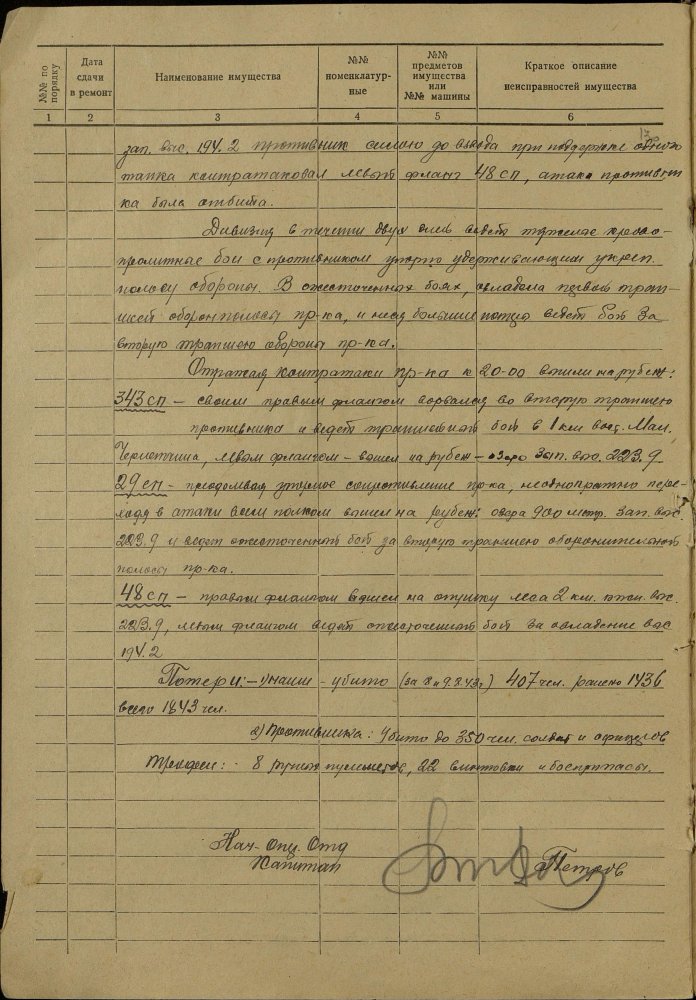 №№ по порядку
Дата сдачи в ремонт
Наименование имущества
№№ номенклатур-ные
№№ предметов имущества или №№ машины
Краткое описание неисправностей имущества
1 2 3 4 5 6
зап. выс. 194.2 противник силою до взвода при поддержке одного
танка контратаковал левый фланг 48 сп, атака противни
ка была отбита.
Дивизия в течении двух дней ведет тяжелые крово-
пролитные бои с противником упорно удерживающим укреп.
полосу обороны. В ожесточенных боях, овладела первой тран-
шеей оборон полосы пр-ка, и неся большие потери ведет бой за
вторую траншею обороны пр-ка.
Отражая контратаки пр-ка к 20-00 вышли на рубеж:
343 сп – своим правым флангом ворвался во вторую траншею
противника и ведет траншейный бой в 1 км вост. Мал.
левым флангом – вышел на рубеж – зап. выс. 223.9
29 сп – преодолевая упорное сопротивление пр-ка, неоднократно пере-
ходя в атаки всем полком вышел на рубеж: 900 метр. зап. выс.
223.9 и ведет ожесточенный бой за вторую траншею оборонительной
полосы пр-ка.
48 сп – правым флангом вышел на опушку леса 2 км. южн. выс.
223.9, левым флангом ведет ожесточенный бой за овладение выс
194.2
Потери: – 1) наши – убито (за 8 и 9.8.43г) 407 чел. ранено 1436
всего 1843 чел.
2) Противника: Убито до 350 чел. солдат и офицеров
Трофеи: - 8 ручных пулеметов, 22 винтовки и боеприпасы.
Нач. Опер. Отд
Капитан Петров